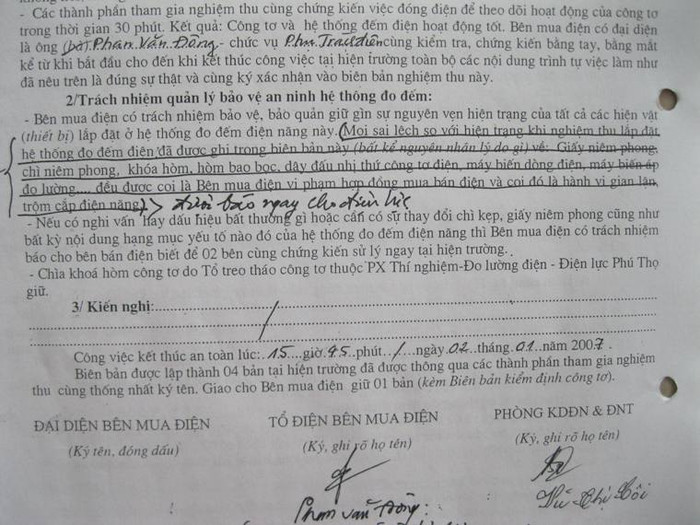 - Các thành phần tham gia nghiệm thu cùng chứng kiến việc đóng điện để theo dõi hoạt động của công tơ
trong thời gian 30 phút. Kết quả: Công tơ và hệ thống đếm điện hoạt động tốt. Bên mua điện có đại diện
là ông (bà): Phạm Văn Đồng - chức vụ cùng kiểm tra, chứng kiến bằng tay, bằng mắt
kể từ khi bắt đầu cho đến khi kết thúc công việc tại hiện trường toàn bộ các nội dung trình tự việc làm như
đã nêu trên là đúng sự thật và cùng ký xác nhận vào biên bản nghiệm thu này.
2/Trách nhiệm quản lý bảo vệ an ninh hệ thống đo đếm:
- Bên mua điện có trách nhiệm bảo vệ, bảo quản giữ gìn sự nguyên vẹn hiện trạng của tất cả các hiện vật
(thiết bị) lắp đặt ở hệ thống đo đếm điện năng này. (Mọi sai lệch so với hiện trạng khi nghiệm thu lắp đặt
hệ thống đo đếm điện đã được ghi trong biên bản này (bất kể nguyên nhân lý do gì) về: Giấy niêm phong,
chì niêm phong, khóa hòm, hòm bao bọc, dây đấu nhị thứ công tơ điện, máy biến dòng điện, máy biến áp
đo lường.... đều được coi là Bên mua điện vi phạm hợp đồng mua bán điện và coi đó là hành vi gian lận,
trộm cắp điện năng) báo ngay cho điện lực
- Nếu có nghi vấn hay dấu hiệu bất thường gì hoặc cần có sự thay đổi chì kẹp, giấy niêm phong cũng như
bất kỳ nội dung hạng mục yếu tố nào đó của hệ thống đo đếm điện năng thì Bên mua điện có trách nhiệm
báo cho bên bán điện biết để 02 bên cùng chứng kiến sử lý ngay tại hiện trường.
- Chìa khoá hòm công tơ do Tổ treo tháo công tơ thuộc PX Thí nghiệm-Đo lường điện - Điện lực Phú Thọ
giữ.
3/ Kiến nghị:
Công việc kết thúc an toàn lúc: 15 giờ 45 phút / ngày 02 tháng 01 năm 2007.
Biên bản được lập thành 04 bản tại hiện trường đã được thông qua các thành phần tham gia nghiệm
thu cùng thống nhất ký tên. Giao cho Bên mua điện giữ 01 bản (kèm Biên bản kiểm định công tơ).
ĐẠI DIỆN BÊN MUA ĐIỆN TỔ ĐIỆN BÊN MUA ĐIỆN PHÒNG KDĐN & ĐNT
(Ký tên, đóng dấu) (Ký, ghi rõ họ tên) (Ký, ghi rõ họ tên)
Phạm Văn Đồng